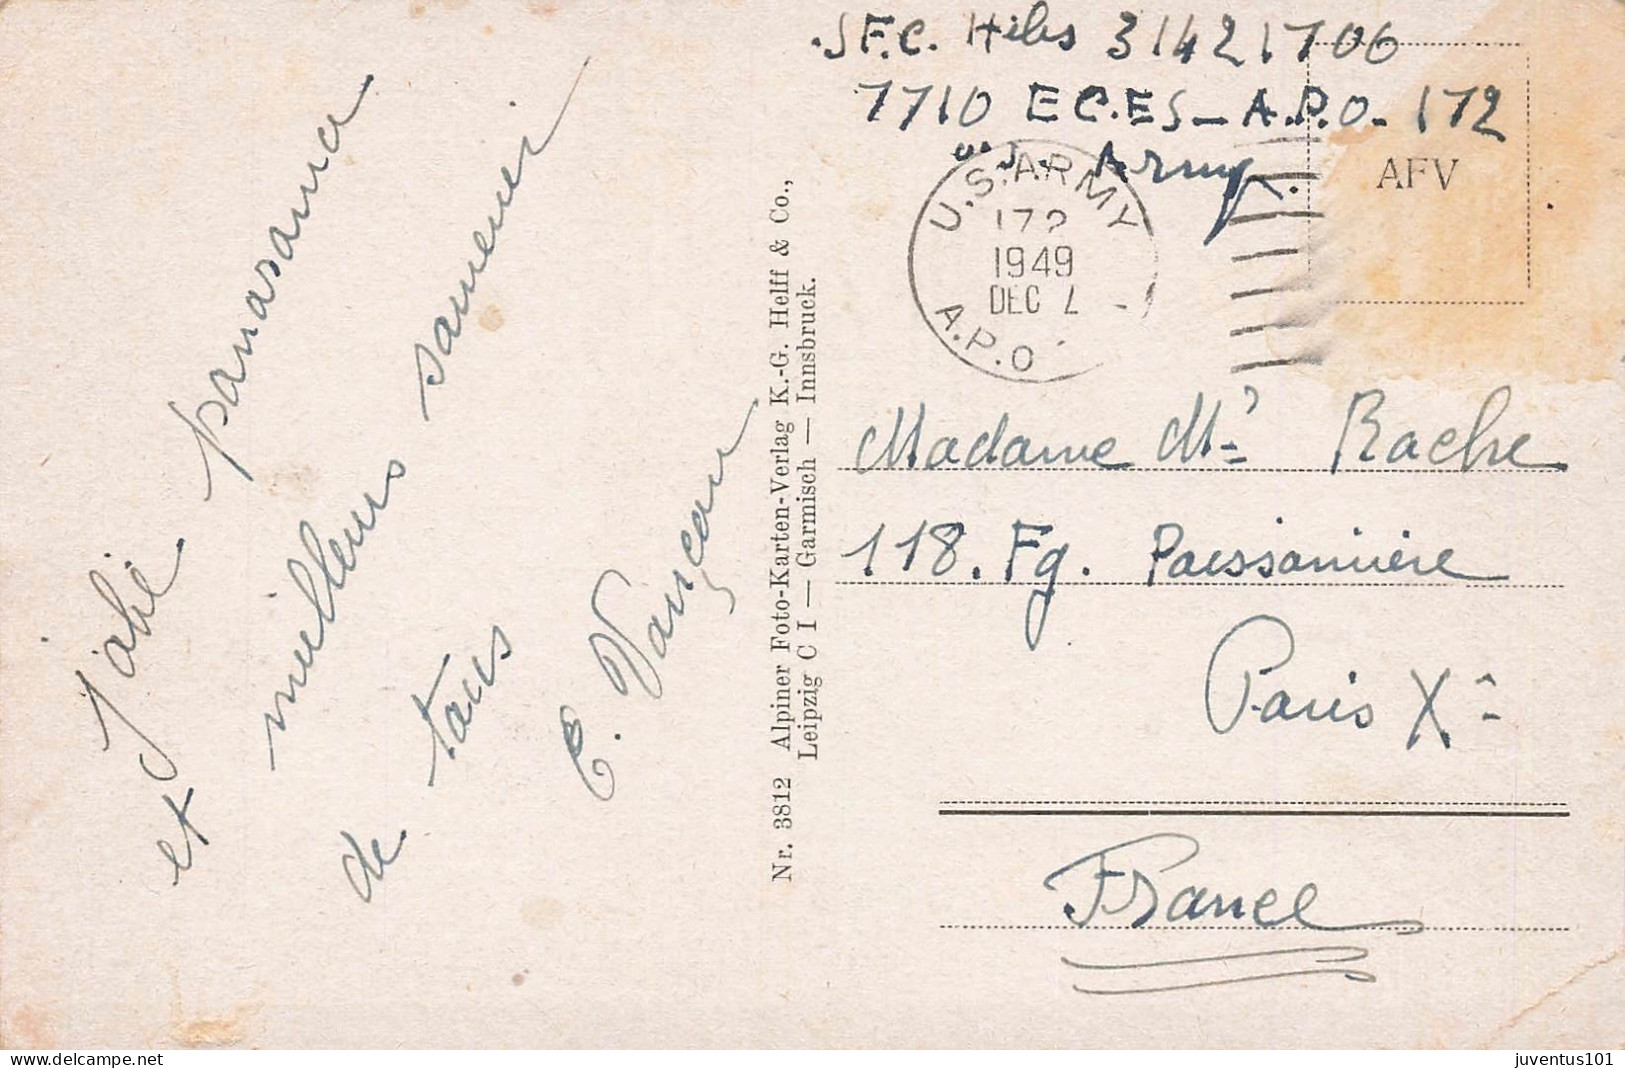 joli panorama
et meilleurs souvenir
de tous
E. Vançon
Nr. 3812 Alpiner Foto-Karten-Verlag K.-G. Helff & Co.,
Leipzig C I — Garmisch — Innsbruck.
SF.C. Hiles 31421706
7710 E C.ES — A.P.O. 172
U.S. Army.
AFV
U.S. ARMY
172
1949
DEC
A.P.O
Madame Mce Roche
118. Fg. Poissonnière
Paris Xe
France
www.delcampe.net
juventus101